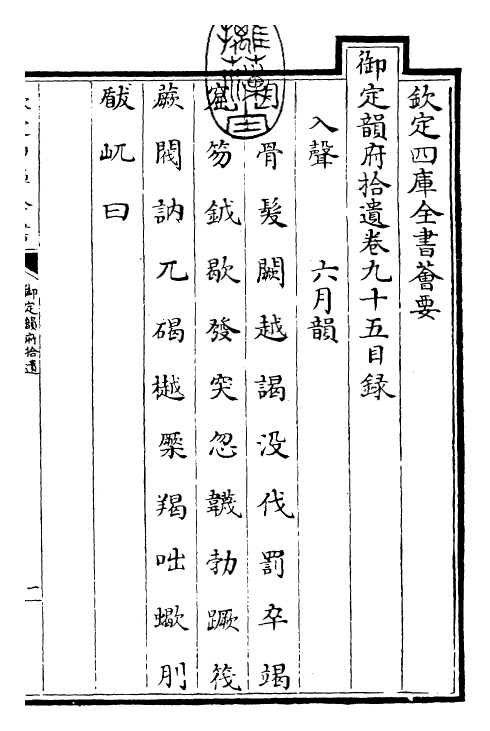 欽定四庫全書薈要
御定韻府拾遺卷九十五目録
入聲　六月韻
月骨髮闕越謁没伐罰卒竭
窟笏鉞歇發突忽韈勃蹶筏
蕨閥訥兀碣樾橜羯咄蠍刖
厭屼曰
御定韻府拾遺
一